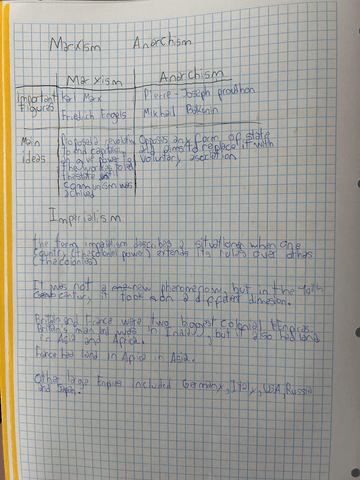 Marxism Anarchism
Marxism Anarchism
Important Figures
Karl Marx
Friedrich Engels
Pierre-Joseph proudhon
Mikhail Bakunin
Main ideas
Proposed a revolution
to end capitalism
give power to
the workers
the state
communism was
Opposs any form of state
and aims to replace it with
voluntary
Imperialism
the term imperialism describes a situation when one
country (the colonial power) extends its rules over others
(the colonies)
It was not a new phenomenon, but in the 19th
century, it took on a different dimension.
Britain and France were two biggest colonial Empires.
Britains main land were in India, but it also had land
in Asia and Africa.
France had land in Africa in Asia.
Other large Empire included Germany, Italy, USA, Russia
and Japan.